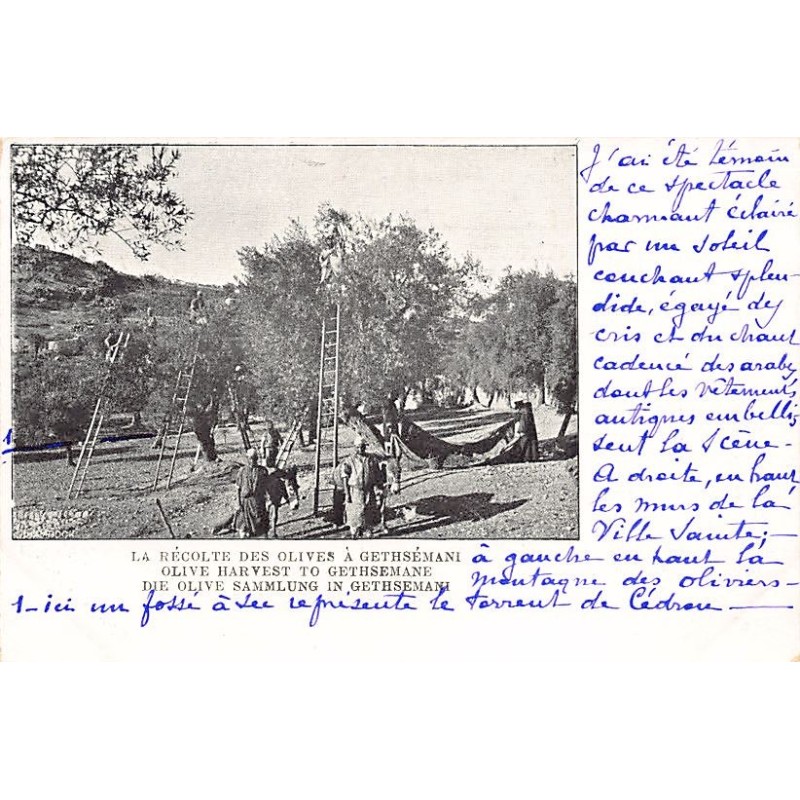 J'ai été témoin
de ce spectacle
charmant éclairé
par un soleil
couchant splen-
dide, égayé des
cris et du chant
cadencé des arabes
dont les vêtements
antiques embellis
sent la scène-
A droite, en haut
les murs de la
Ville Sainte;-
à gauche en haut la
montagne des oliviers-
1
LA RÉCOLTE DES OLIVES À GETHSÉMANI
OLIVE HARVEST TO GETHSEMANE
DIE OLIVE SAMMLUNG IN GETHSEMANI
1- ici un fossé à sec représente le torrent de Cédron-